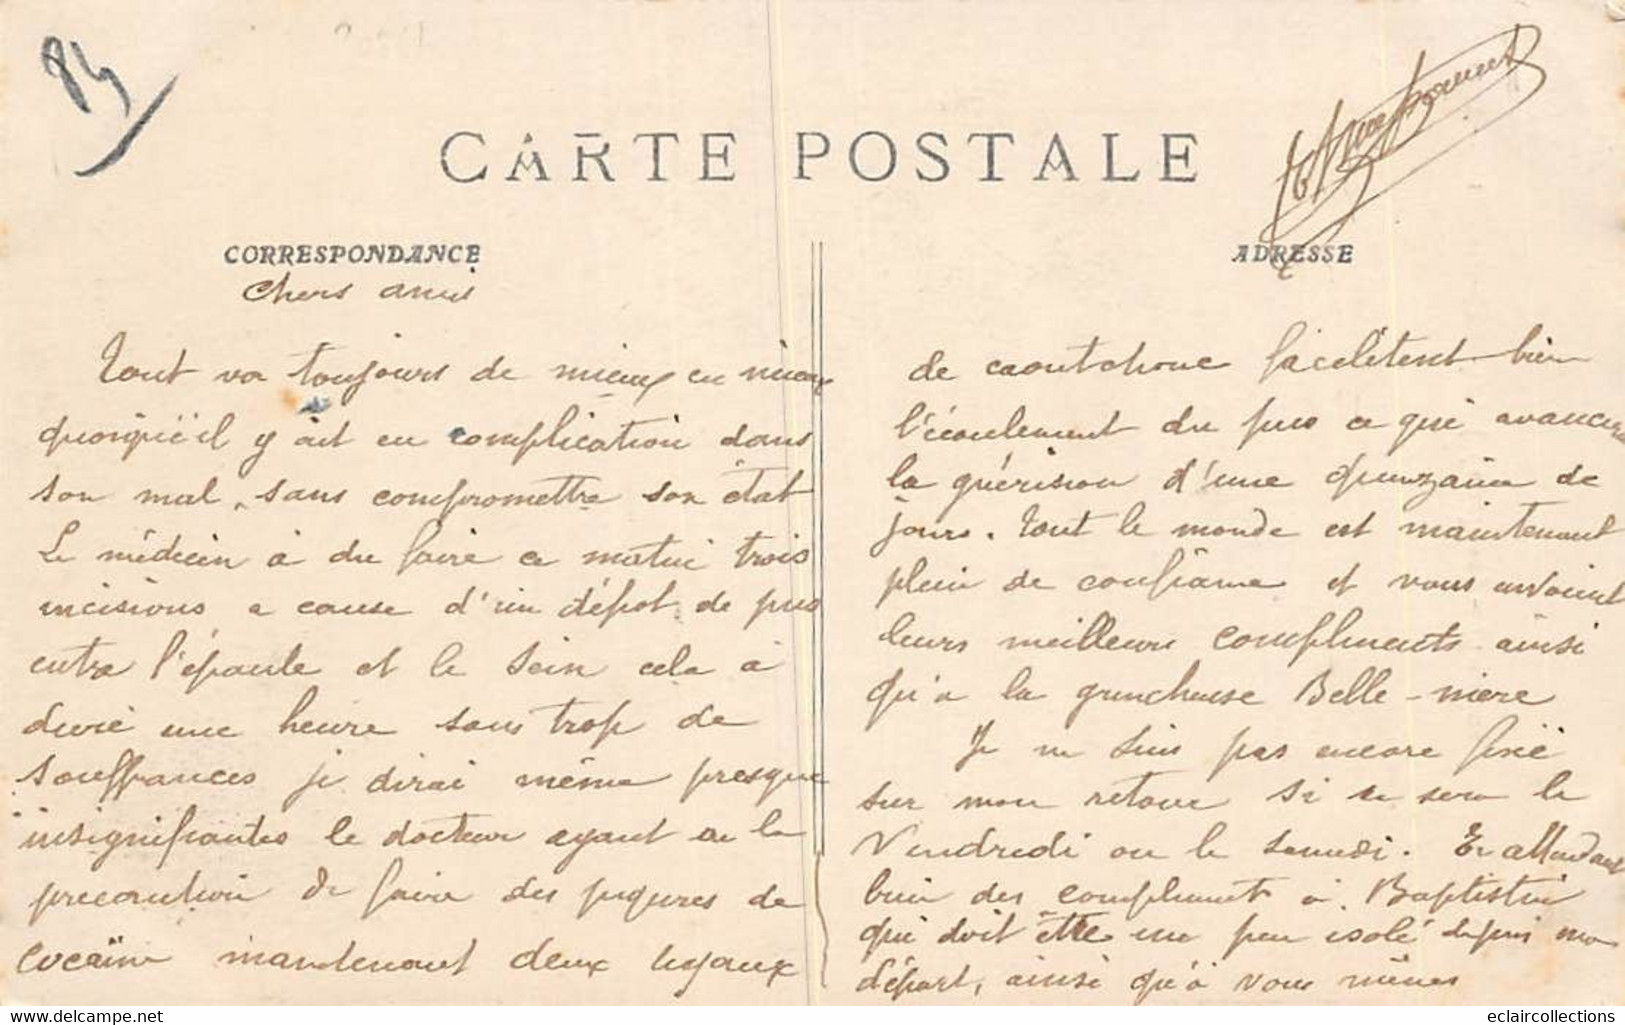 84
CARTE POSTALE
CORRESPONDANCE
ADRESSE
Chers amis
Tout va toujours de mieux en mieux
quoiqu'il y ait eu complication dans
son mal, sans compromettre son état
Le médecin à du faire ce matin trois
incisions a cause d'un dépot de pus
entre l'épaule et le sein cela à
duré une heure sans trop de
souffrances je dirai même presque
insignifiantes le docteur ayant eu la
precaution de faire des piqures de
cocaïne maintenant deux tuyaux
de caoutchouc facilitent bien
l'écoulement du pus ce qui avancera
la guérison d'une quinzaine de
jours. Tout le monde est maintenant
plein de confiance et vous envoient
leurs meilleurs compliments ainsi
qu'a la grincheuse Belle-mère
Je ne suis pas encore fixé
sur mon retour si ce sera le
Vendredi ou le samedi. En attendant
bien des compliments à Baptistin
qui doit être un peu isolé depuis mon
départ, ainsi qu'à vous mêmes
eclaircollections
delcampe.net